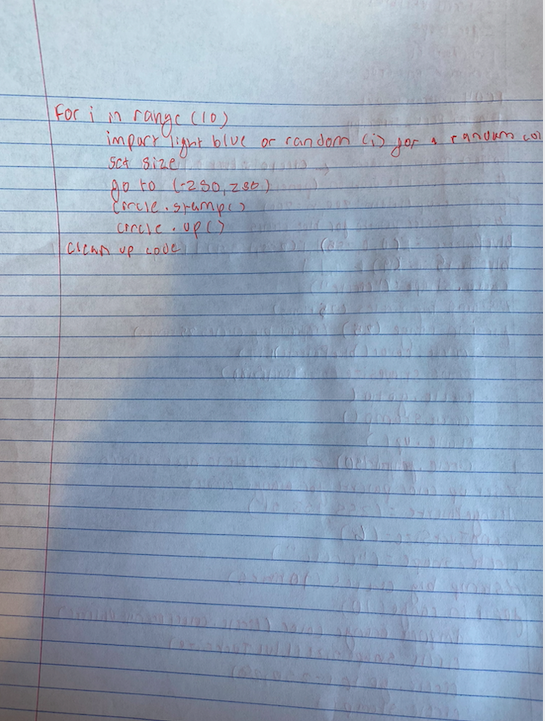 for i in range (10)
import light blue or random (i) for a random col
set size
go to (-250, 250)
circle.stamp()
circle.up()
clean up code